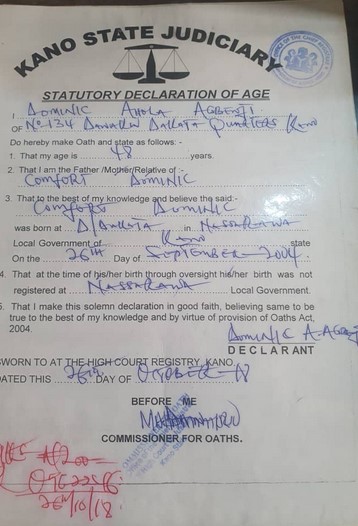 KANO STATE JUDICIARY
STATUTORY DECLARATION OF AGE
I DOMINIC AHOLA AGBENJI
OF No 134 DAKATA QUARTERS KANO
Do hereby make Oath and state as follows:-
1. That my age is 48 years.
2. That I am the Father /Mother/Relative of:-
COMFORT DOMINIC
3. That to the best of my knowledge and believe the said:-
COMFORT DOMINIC
was born at D/DAKATA in NASSARAWA
Local Government of KANO state
On the 26TH Day of SEPTEMBER 2004.
4. That at the time of his/her birth through oversight his/her birth was not
registered at NASSARAWA Local Government.
5. That I make this solemn declaration in good faith, believing same to be
true to the best of my knowledge and by virtue of provision of Oaths Act,
2004.
DOMINIC A-AGBE
DECLARANT
SWORN TO AT THE HIGH COURT REGISTRY, KANO
DATED THIS 26TH DAY OF OCTOBER-18
BEFORE ME
COMMISSIONER FOR OATHS.
₦200=
26/10/18